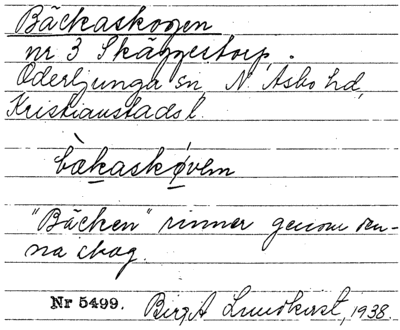 Bäckaskogen
nr 3 Skäggestorp.
Oderljunga sn N. Åsbo hd,
Kristianstads l.
bækaskóvem
"Bäcken" rinner genom den-
na skog.
Nr 5499. Birgit Lundkvist, 1938.